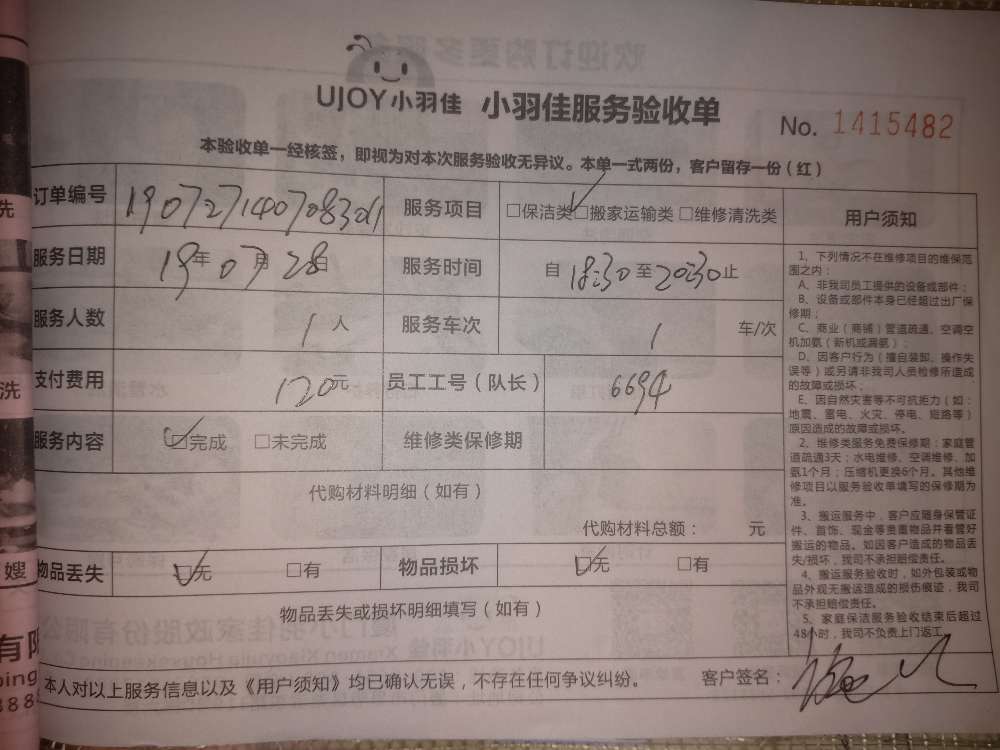 UJOY小羽佳 小羽佳服务验收单
No. 1415482
本验收单一经核签，即视为对本次服务验收无异议。本单一式两份，客户留存一份（红）
订单编号 服务项目 □保洁类□搬家运输类 □维修清洗类 用户须知
服务日期 19年07月28日 服务时间 自18:30至20:30止
服务人数 1人 服务车次 1 车/次
支付费用 120元 员工工号（队长） 6694
服务内容 ☑完成 □未完成 维修类保修期
代购材料明细（如有）
代购材料总额： 元
物品丢失 ☑无 □有 物品损坏 ☑无 □有
物品丢失或损坏明细填写（如有）
本人对以上服务信息以及《用户须知》均已确认无误，不存在任何争议纠纷。 客户签名：
1、下列情况不在维修项目的维保范
围之内：
A、非我司员工提供的设备或部件；
B、设备或部件本身已经超过出厂保
修期；
C、商业（商铺）管道疏通、空调空
机加氨（新机或漏氨）；
D、因客户行为（擅自装卸、操作失
误等）或另请非我司人员检修所造成
的故障或损坏；
E、因自然灾害等不可抗拒力（如：
地震、雷电、火灾、停电、短路等）
原因造成的故障或损坏。
2、维修类服务免费保修期：家庭管
道疏通3天；水电维修、空调维修、加
氨1个月；压缩机更换6个月。其他维
修项目以服务验收单填写的保修期为
准。
3、搬运服务中，客户应随身保管证
件、首饰、现金等贵重物品并看管好
搬运的物品。如因客户造成的物品丢
失/损坏，我司不承担赔偿责任。
4、搬运服务验收时，如外包装或物
品外观无搬运造成的损伤痕迹，我司
不承担赔偿责任。
5、家庭保洁服务验收结束后超过
48小时，我司不负责上门返工。
先
洗
嫂
有限
ping